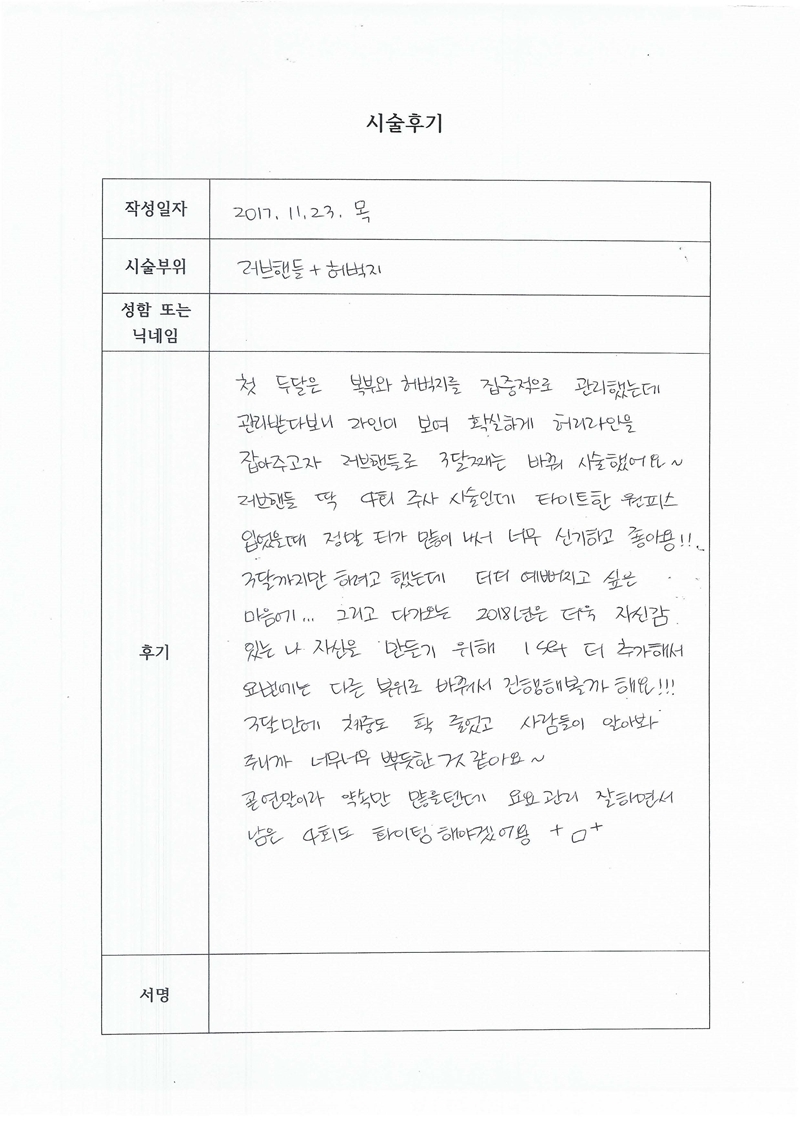 시술후기
작성일자 2017. 11. 23. 목
시술부위 러브핸들 + 허벅지
성함 또는
닉네임
첫 두달은 복부와 허벅지를 집중적으로 관리했는데
관리받다보니 라인이 보여 확실하게 허리라인을
잡아주고자 러브핸들로 3달째는 바꿔 시술했어요~
러브핸들 딱 4회 주사 시술인데 타이트한 원피스
입었을때 정말 티가 많이 나서 너무 신기하고 좋아용!!
3달까지만 하려고 했는데 더더 예뻐지고 싶은
마음에... 그리고 다가오는 2018년은 더욱 자신감
후기
있는 나 자신을 만들기 위해 1 set 더 추가해서
요번에는 다른 부위로 바꿔서 진행해볼까 해요!!!
3달만에 체중도 확 줄었고 사람들이 알아봐
주니까 너무너무 뿌듯한 것 같아요~
곧 연말이라 약속만 많을텐데 요요관리 잘하면서
남은 4회도 화이팅 해야겠어용 + ㅁ +
서명